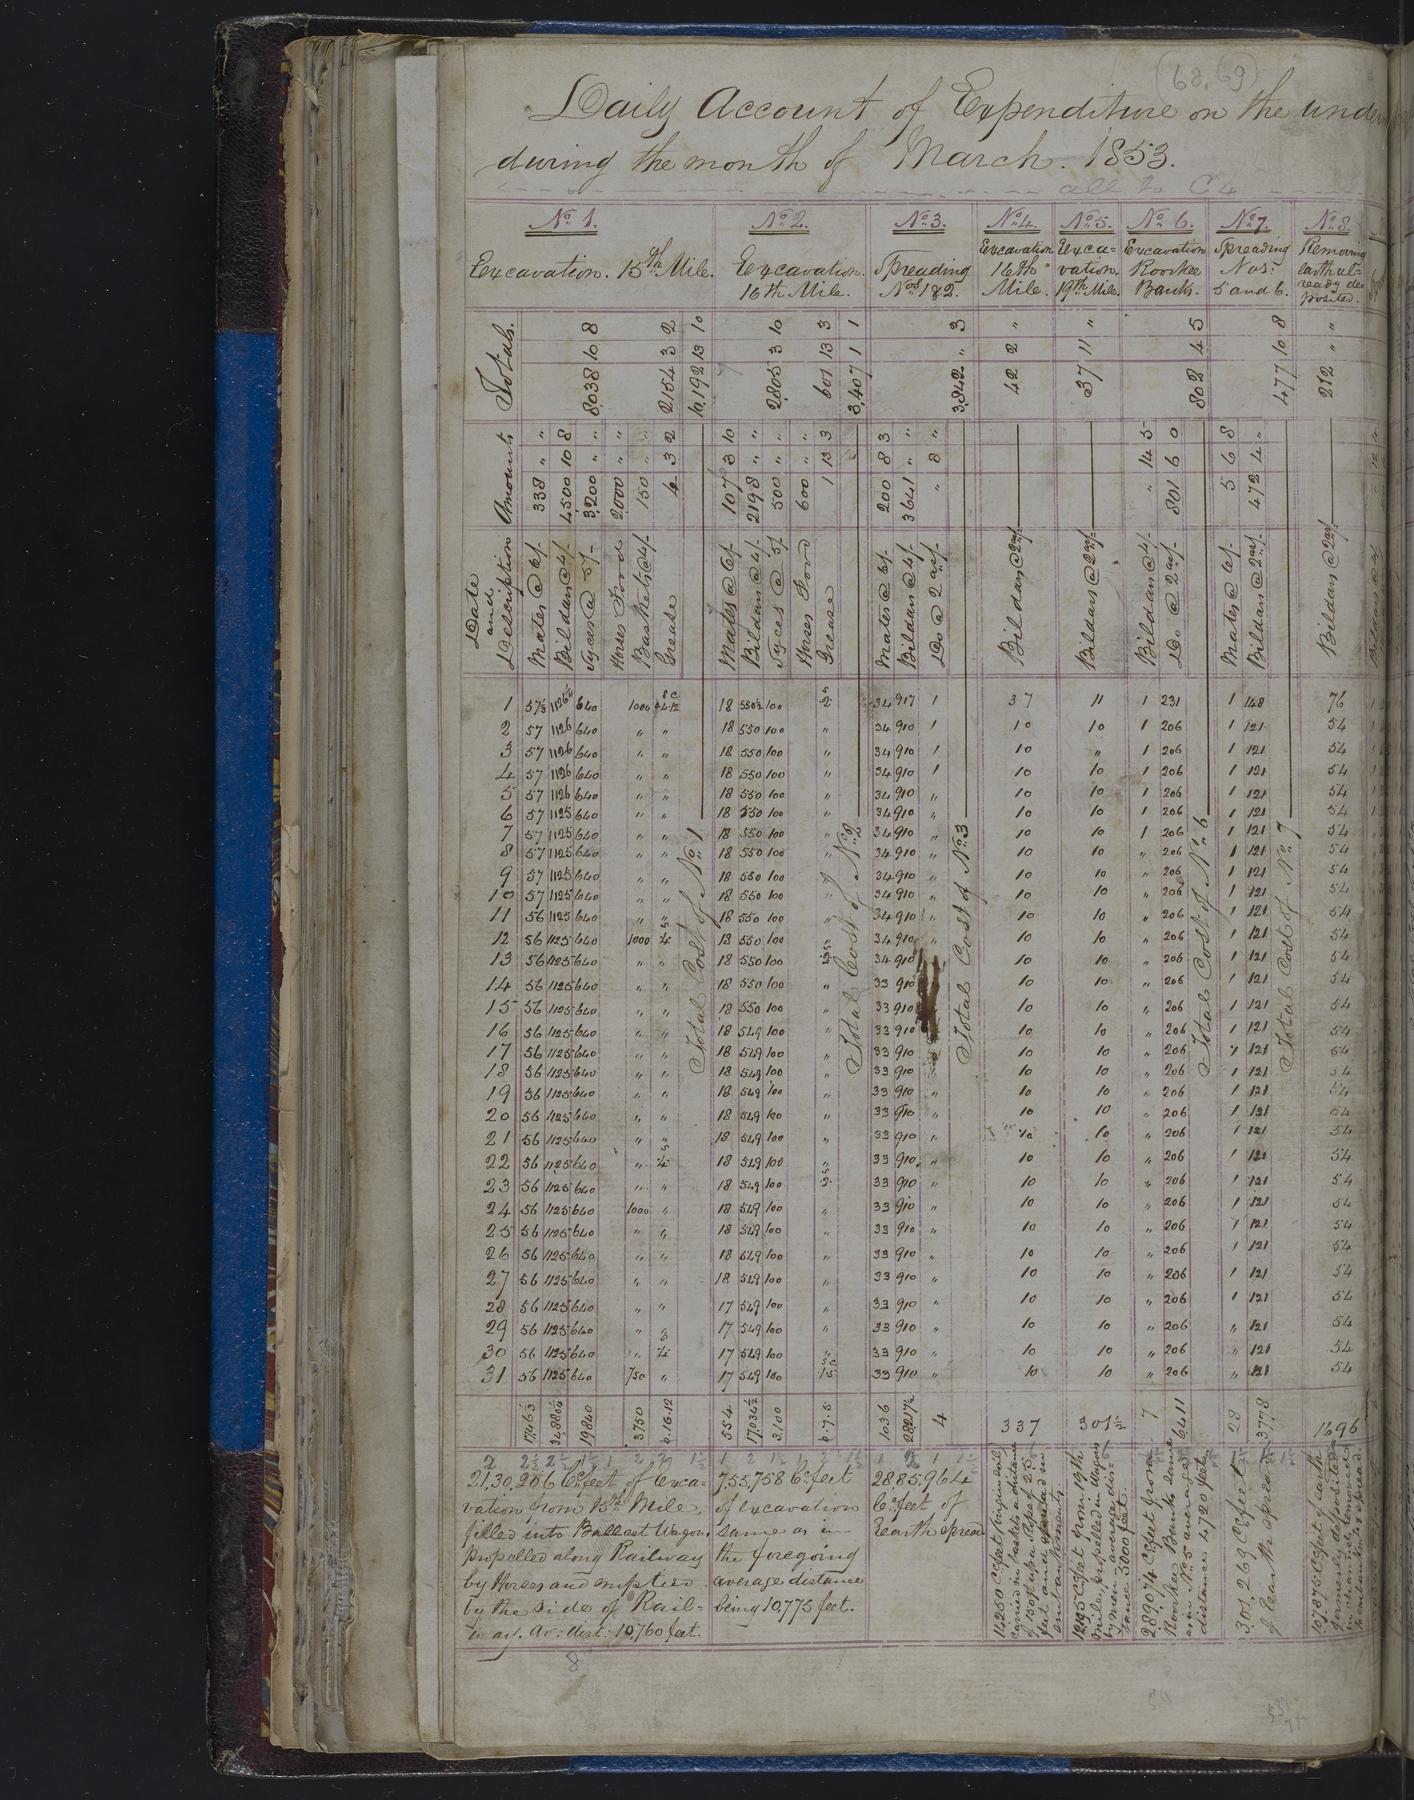 (68, 69)
Daily Account of Expenditure on the under
during the month of March. 1853.
all to C 4
No. 1. No. 2. No. 3. No. 4. No. 5. No. 6. No. 7. No. 8.
Excavation. 15th Mile.
Excavation.
16th Mile.
Spreading
Nos 1 & 2.
Excavation
16th
Mile.
Exca=
vation
19th Mile.
Excavation
Roorkee
Banks.
Spreading
Nos:
5 and 6.
Removing
earth al=
ready de=
posited.
Totals.
8038 10 8
2154 3 2
10,192 13 10
2,805 3 10
601 13 3
3,407 1 1
3,842 " 3
42 2 "
37 11 "
802 4 5
477 10 8
212 " "
Amounts
338 " "
4,500 10 8
3,200 " "
2,000 " "
150 " "
4 3 2
107 3 10
2198 " "
500 " "
600 " "
1 13 3
200 8 3
3641 " "
" 8 "
" 14 5
801 6 0
5 6 8
472 4 "
Date
and
Description
Mates @ 6/-
Bildars @ 4/-
Syces @ 5/-
Horses Food
Baskets @ 4/-
Grease
Mates @ 6/-
Bildars @ 4/-
Syces @ 5/-
Horses Food
Grease
Mates @ 6/-
Bildars @ 4/-
Do @ 2 as/-
Bildars @ 2 as/-
Bildars @ 2 as/-
Bildars @ 4/-
Do @ 2 as/-
Mates @ 6/-
Bildars @ 2 as/-
Bildars @ 2 as/-
1 57 640 1000 18 550½ 100 34 917 1 37 11 1 231 1 148 76
2 57 1126 640 " " 18 550 100 " 34 910 1 10 10 1 206 1 121 54
3 57 1126 640 " " 18 550 100 " 34 910 1 10 " 1 206 1 121 54
4 57 1126 640 " " 18 550 100 " 34 910 1 10 10 1 206 1 121 54
5 57 1126 640 " " 18 550 100 " 34 910 " 10 10 1 206 1 121 54
6 57 1125 640 " " 18 550 100 " 34 910 " 10 10 1 206 1 121 54
7 57 1125 640 " " 18 550 100 " 34 910 " 10 10 1 206 1 121 54
8 57 1125 640 " " 18 550 100 " 34 910 " 10 10 " 206 1 121 54
9 57 1125 640 " " 18 550 100 " 34 910 " 10 10 " 206 1 121 54
10 57 1125 640 " " 18 550 100 " 34 910 " 10 10 " 206 1 121 54
11 56 1125 640 " " 18 550 100 " 34 910 " 10 10 " 206 1 121 54
12 56 1125 640 1000 18 550 100 " 34 910 " 10 10 " 206 1 121 54
13 56 1125 640 " " 18 550 100 34 910 10 10 " 206 1 121 54
14 56 1125 640 " " 18 550 100 " 33 910 10 10 " 206 1 121 54
15 56 1125 640 " " 18 550 100 " 33 910 10 10 " 206 1 121 54
16 56 1125 640 " " 18 549 100 " 33 910 10 10 " 206 1 121 54
17 56 1125 640 " " 18 549 100 " 33 910 " 10 10 " 206 1 121 54
18 56 1125 640 " " 18 549 100 " 33 910 " 10 10 " 206 1 121 54
19 56 1125 640 " " 18 549 100 " 33 910 " 10 10 " 206 1 121 54
20 56 1125 640 " " 18 549 100 " 33 910 " 10 10 " 206 1 121 54
21 56 1125 640 " " 18 549 100 " 33 910 " 10 10 " 206 1 121 54
22 56 1125 640 " 18 549 100 " 33 910 " 10 10 " 206 1 121 54
23 56 1125 640 " " 18 549 100 33 910 " 10 10 " 206 1 121 54
24 56 1125 640 1000 " 18 549 100 " 33 910 " 10 10 " 206 1 121 54
25 56 1125 640 " " 18 549 100 " 33 910 " 10 10 " 206 1 121 54
26 56 1125 640 " " 18 549 100 " 33 910 " 10 10 " 206 1 121 54
27 56 1125 640 " " 18 549 100 " 33 910 " 10 10 " 206 1 121 54
28 56 1125 640 " " 17 549 100 " 33 910 " 10 10 " 206 1 121 54
29 56 1125 640 " " 17 549 100 " 33 910 " 10 10 " 206 " 121 54
30 56 1125 640 " 17 549 100 " 33 910 " 10 10 " 206 " 121 54
31 56 1125 640 750 " 17 549 100 33 910 " 10 10 " 206 " 121 54
Total Cost of No. 1
Total Cost of No. 2
Total Cost of No. 3
Total Cost of No. 6
Total Cost of No. 7
19840 3750 0.16.12 554 17034½ 3,100 0.7.5 1036 28217½ 4 337 301½ 7 6411 28 3778 1696
21,30,206 Cc. feet of Exca=
vation from 15th Mile,
filled into Ballast Wagons
propelled along Railway
by Horses and emptied
by the side of Rail=
way. Av: dist: 10,760 feet.
7,55,758 Cc. feet
of excavation
same as in
the foregoing
average distance
being 10,775 feet.
28,85,964
Cc. feet of
Earth spread
carried in baskets a distance
embankments.
by men average dis=
tance 3000 feet.
2,89,074 C. feet from
Roorkee Banks done
as in No. 5 average
distance 4720 feet.
3,01,269 C. feet
of Earth spread